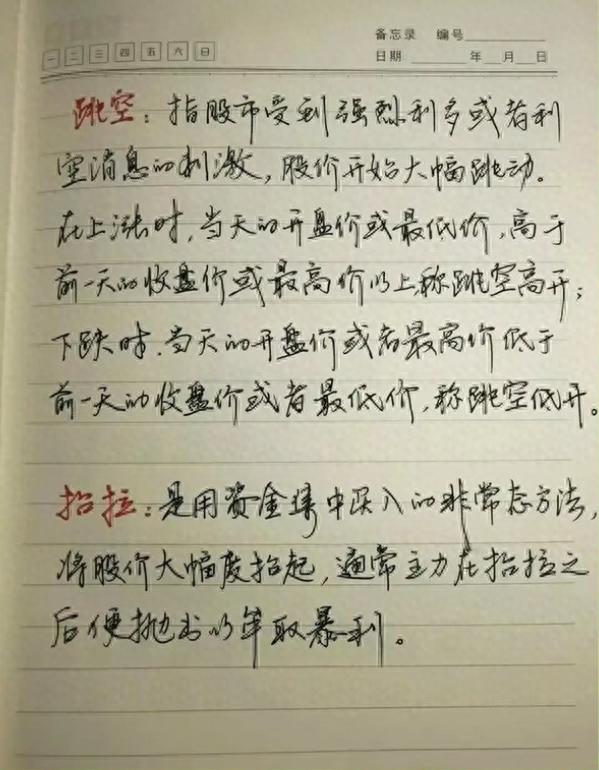 备忘录 编号
一 二 三 四 五 六 日 日期 年 月 日
跳空：指股市受到强烈利多或者利
空消息的刺激，股价开始大幅跳动。
在上涨时，当天的开盘价或最低价，高于
前一天的收盘价或最高价以上，称跳空高开；
下跌时，当天的开盘价或者最高价低于
前一天的收盘价或者最低价，称跳空低开。
抬拉：是用资金集中买入的非常态方法，
将股价大幅度抬起，通常主力在抬拉之
后便抛出以牟取暴利。